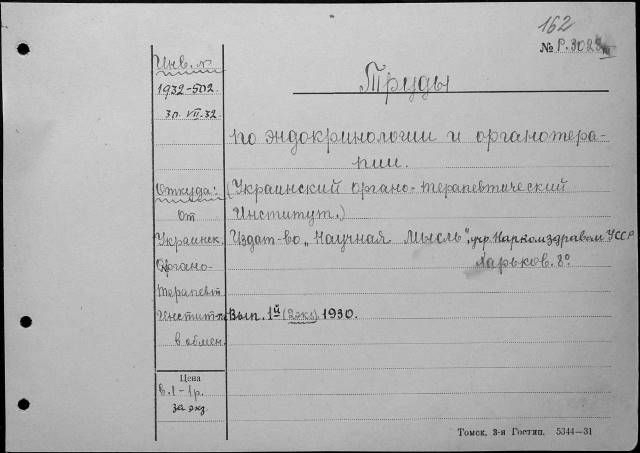 162
№ Р.3025 III
Инв. №
1932-502
30. VII. 32
Труды
по эндокринологии и органотера-
пии.
Откуда:
(Украинский органо-терапевтический
от
Институт.)
Украинск.
Издат-во „Научная Мысль", учр. Наркомздравом УССР
Органо-
Харьков. 8°
терапевт
Институт
Вып. 1й (2 экз). 1930.
в обмен.
Цена
в. 1 - 1 р.
за экз.
Томск, 3-я Гостип. 5344—31